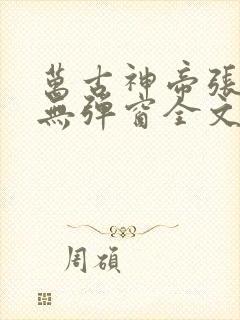 萬古神帝張
無彈窗全文
周碩